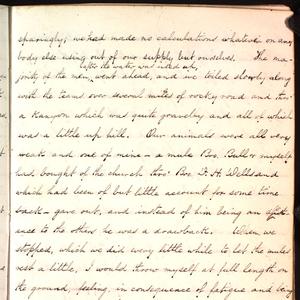 sparingly; we had made no calculations whatever on any
body else using out of our supply but ourselves. The ma-
after the water was used up,
jority of the men went ahead, and we toiled slowly along
with the teams over several miles of rocky road and thro
a Kanyon which was quite gravelly and all of which
was a little up hill. Our animals were all very
weak and one of mine - a mule Bro. Bull & myself
had bought of the church thro. Bro. D. H.
which had been of but little account for some time
back - gave out, and instead of him being an assist-
ance to the others he was a drawback. When we
stopped, which we did every little while to let the mules
rest a little, I would throw myself at full length on
the ground, feeling, in consequence of fatigue and